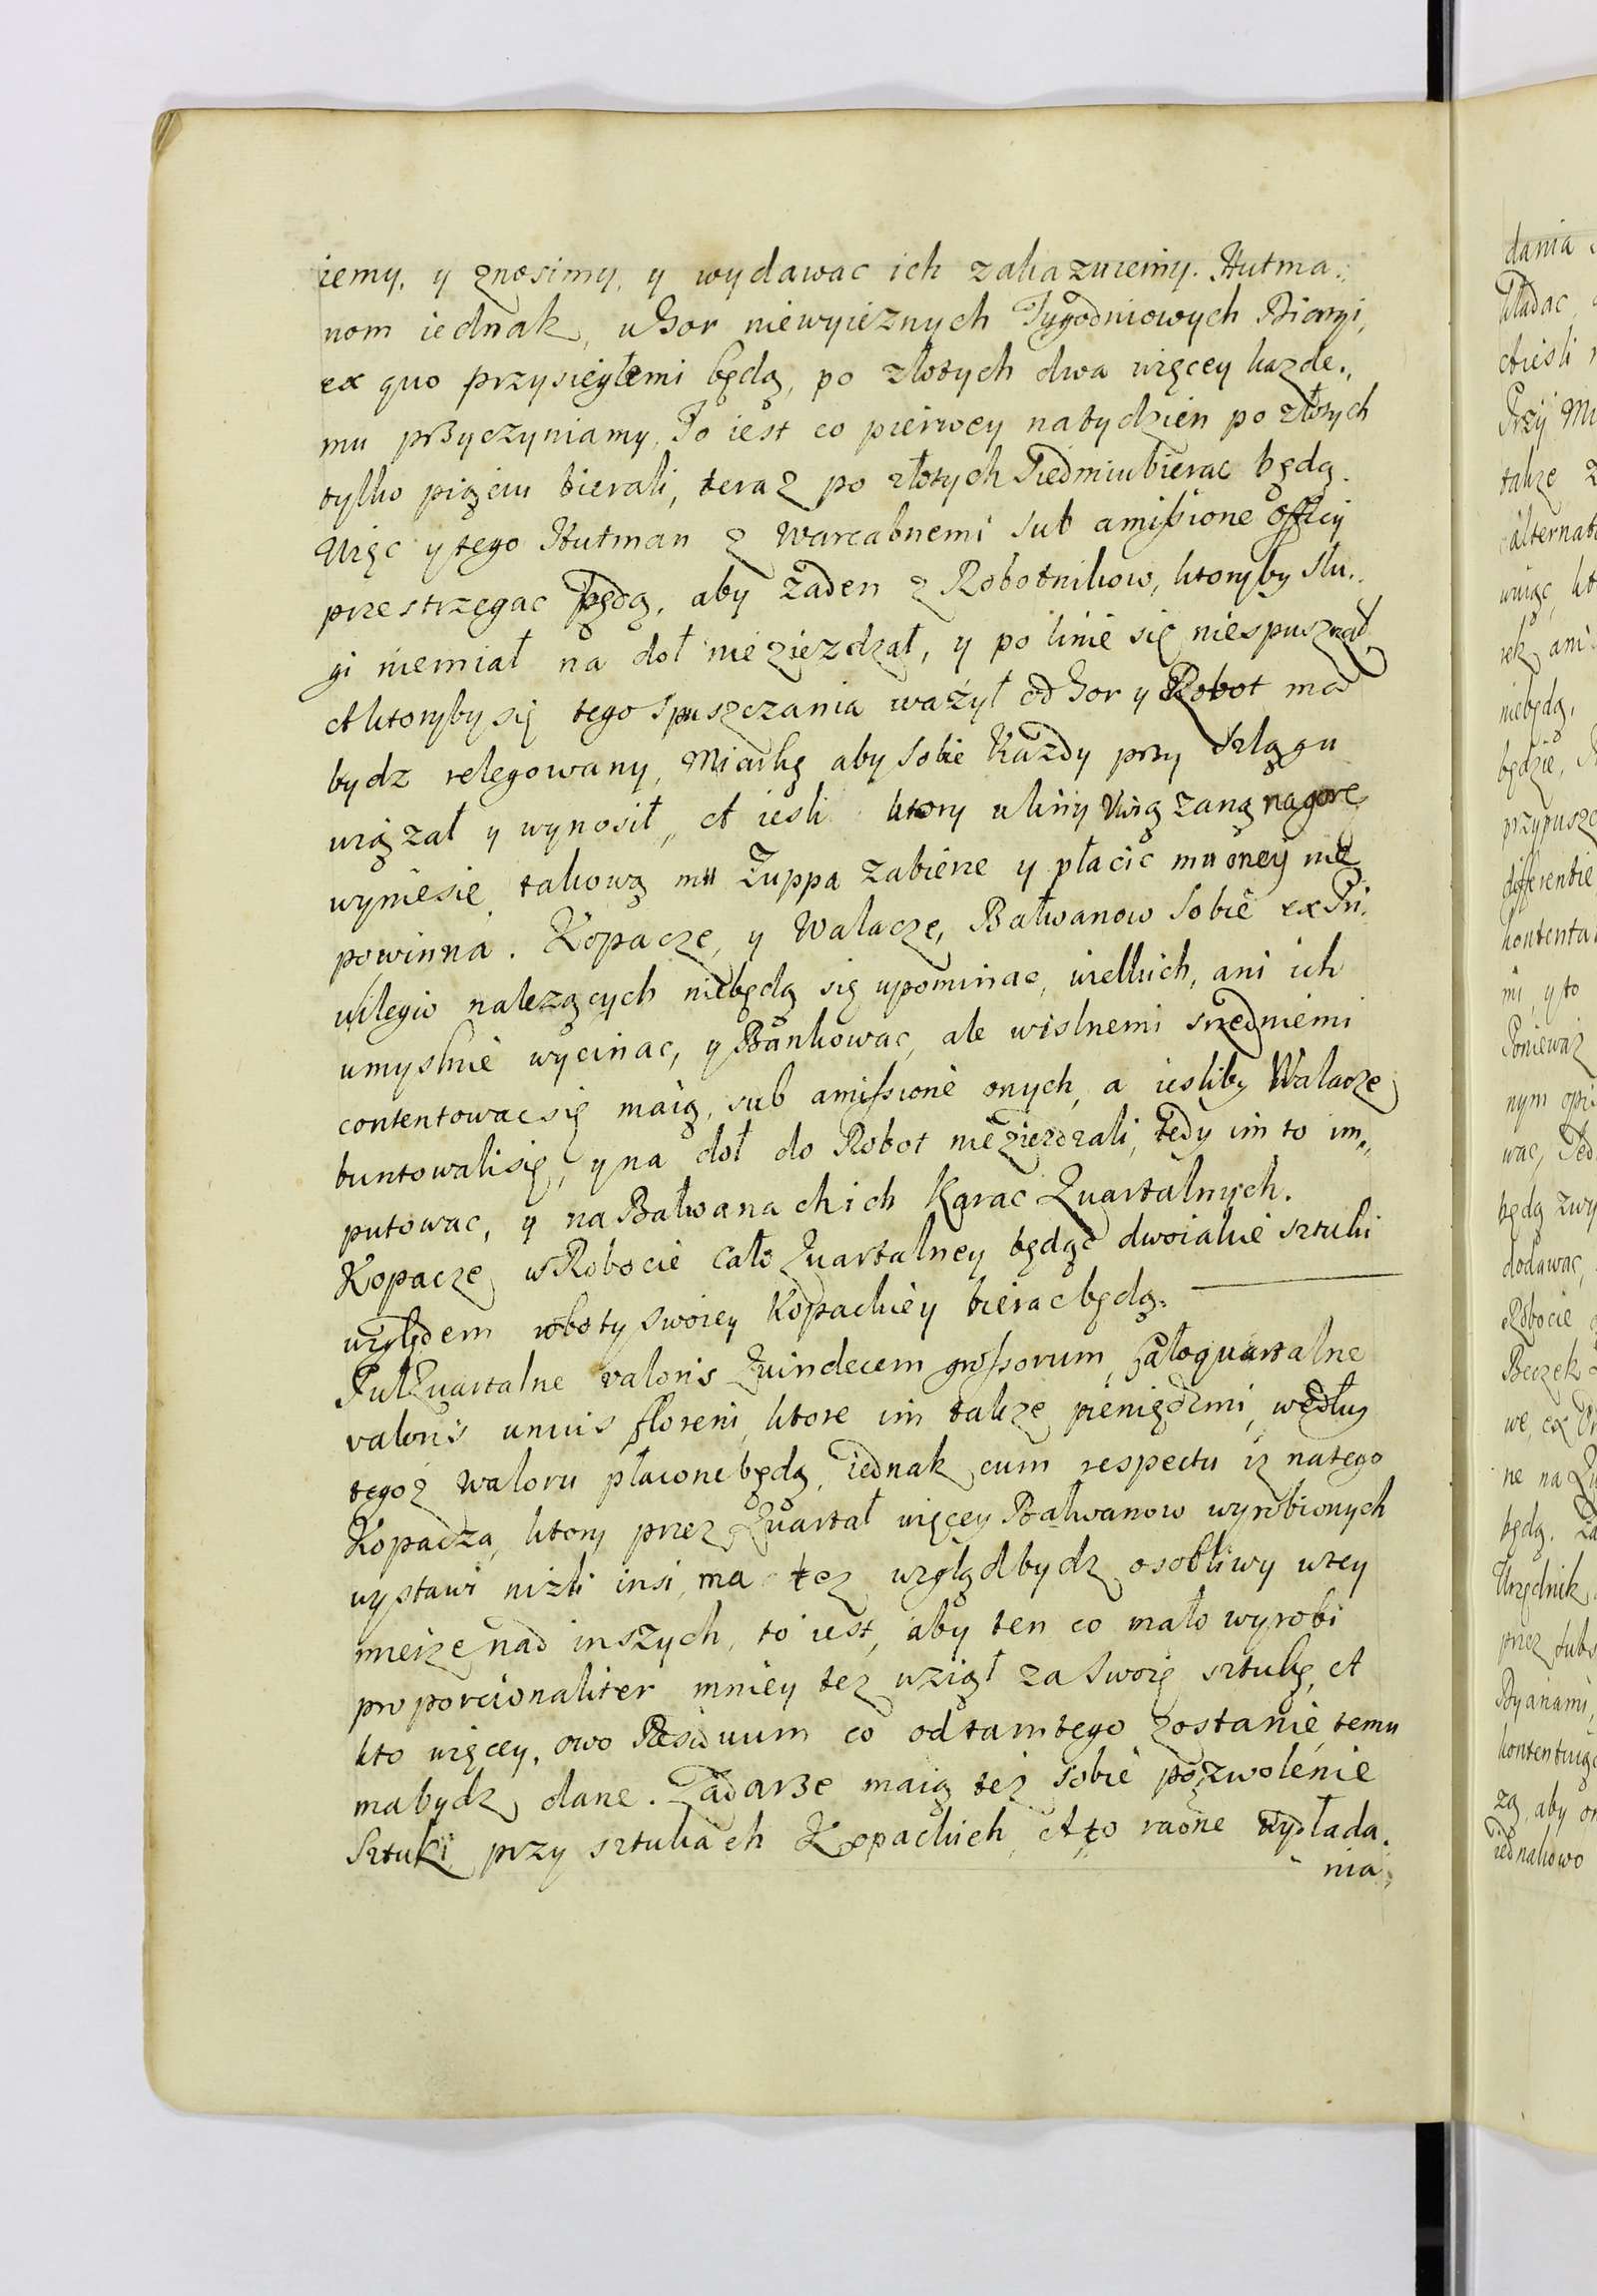 iemy, y znosimy, y wydawac ich zakazuiemy. Hutma:
nom iednak, u Gor niewyieznych Tygodniowych
ex quo przysięgłemi będą, po złotych dwa więcey kazde.,
mu przyczyniamy, To iest co pierwey natydzien po złotych
tylko piąciu bierali, teraz po złotych Siedmiu bierac będą.
Więc y tego Hutman z Warcabnemi sub amissione officij
przestrzegac będą, aby żaden z Robotnikow, ktoryby Słu..
gi niemiał na doł niezieżdzał, y po linie się niespuszczał,
A ktoryby się tego spuszczania ważył od Gor y Robot ma
bydz relegowany, Miarkę aby sobie Kazdy przy Szlągu
wiązał y wynosił, A iesli ktory u liny wiązaną nagorę
wyniesie takową mu Zuppa zabierze y płacic mu oney nie
powinna. Kopacze, y Walacze, Bałwanow sobie ex Pri:
wilegio nalezących niebędą się upominac, wielkich, ani ich
umyslnie wycinac, y Bankowac, ale wislnemi srzedniemi
contentowac się maią, sub amissione onych, a iesliby Walacze
buntowali się, y na doł do Robot niezieżdzali, tedy im to im„
putowac, y na Bałwanach ich Karac Quartalnych.
Kopacze w Robocie Cało Quartalney będąc dwoiakie sztuki
względem roboty swoiey Kopackiey bierac będą.
Puł Quartalne valoris Quindecem grossorum, całoquartalne
valoris unius floreni, ktore im takze pieniędzmi, według
tegoz waloru płacone będą, iednak cum respectu iz natego
Kopacza, ktory przez Quartał więcey Bałwanow wyrobionych
wystawi niżli insi, ma tez wzgląd bydz osobliwy wtey
mierze nad inszych, to iest, aby ten co mało wyrobi
proporcionaliter mniey tez wziął za swoię sztukę, A
kto więcey, owo Residuum co od tamtego zostanie, temu
ma bydz dane. maią tez sobie pozwolenie
Sztuki przy sztukach Kopackich, A to raone wykłada.
nia,